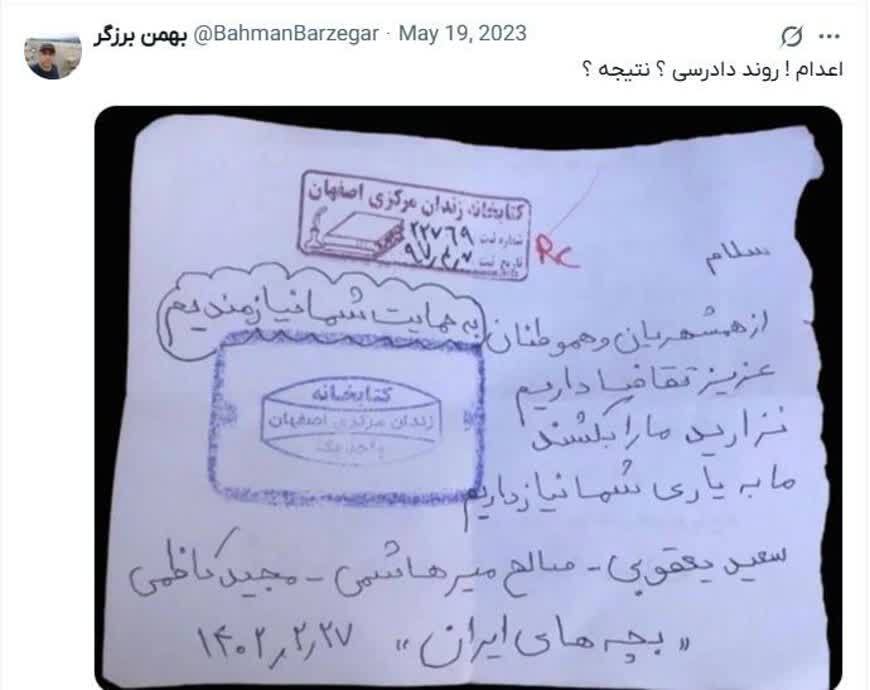 بهمن برزگر @BahmanBarzegar · May 19, 2023
اعدام ! روند دادرسی ؟ نتیجه ؟
کتابخانه زندان مرکزی اصفهان
شماره ثبت ۲۲۷۶۹
تاریخ ثبت ۹۷٫۴٫۷
RC
سلام
به حمایت شما نیازمندیم
از همشهریان و هموطنان
عزیز تقاضا داریم
نزارید ما را بکشند
ما به یاری شما نیاز داریم
کتابخانه
زندان مرکزی اصفهان
سعید یعقوبی - صالح میرهاشمی - مجید کاظمی
«بچه های ایران» ۱۴۰۲٫۲٫۲۷